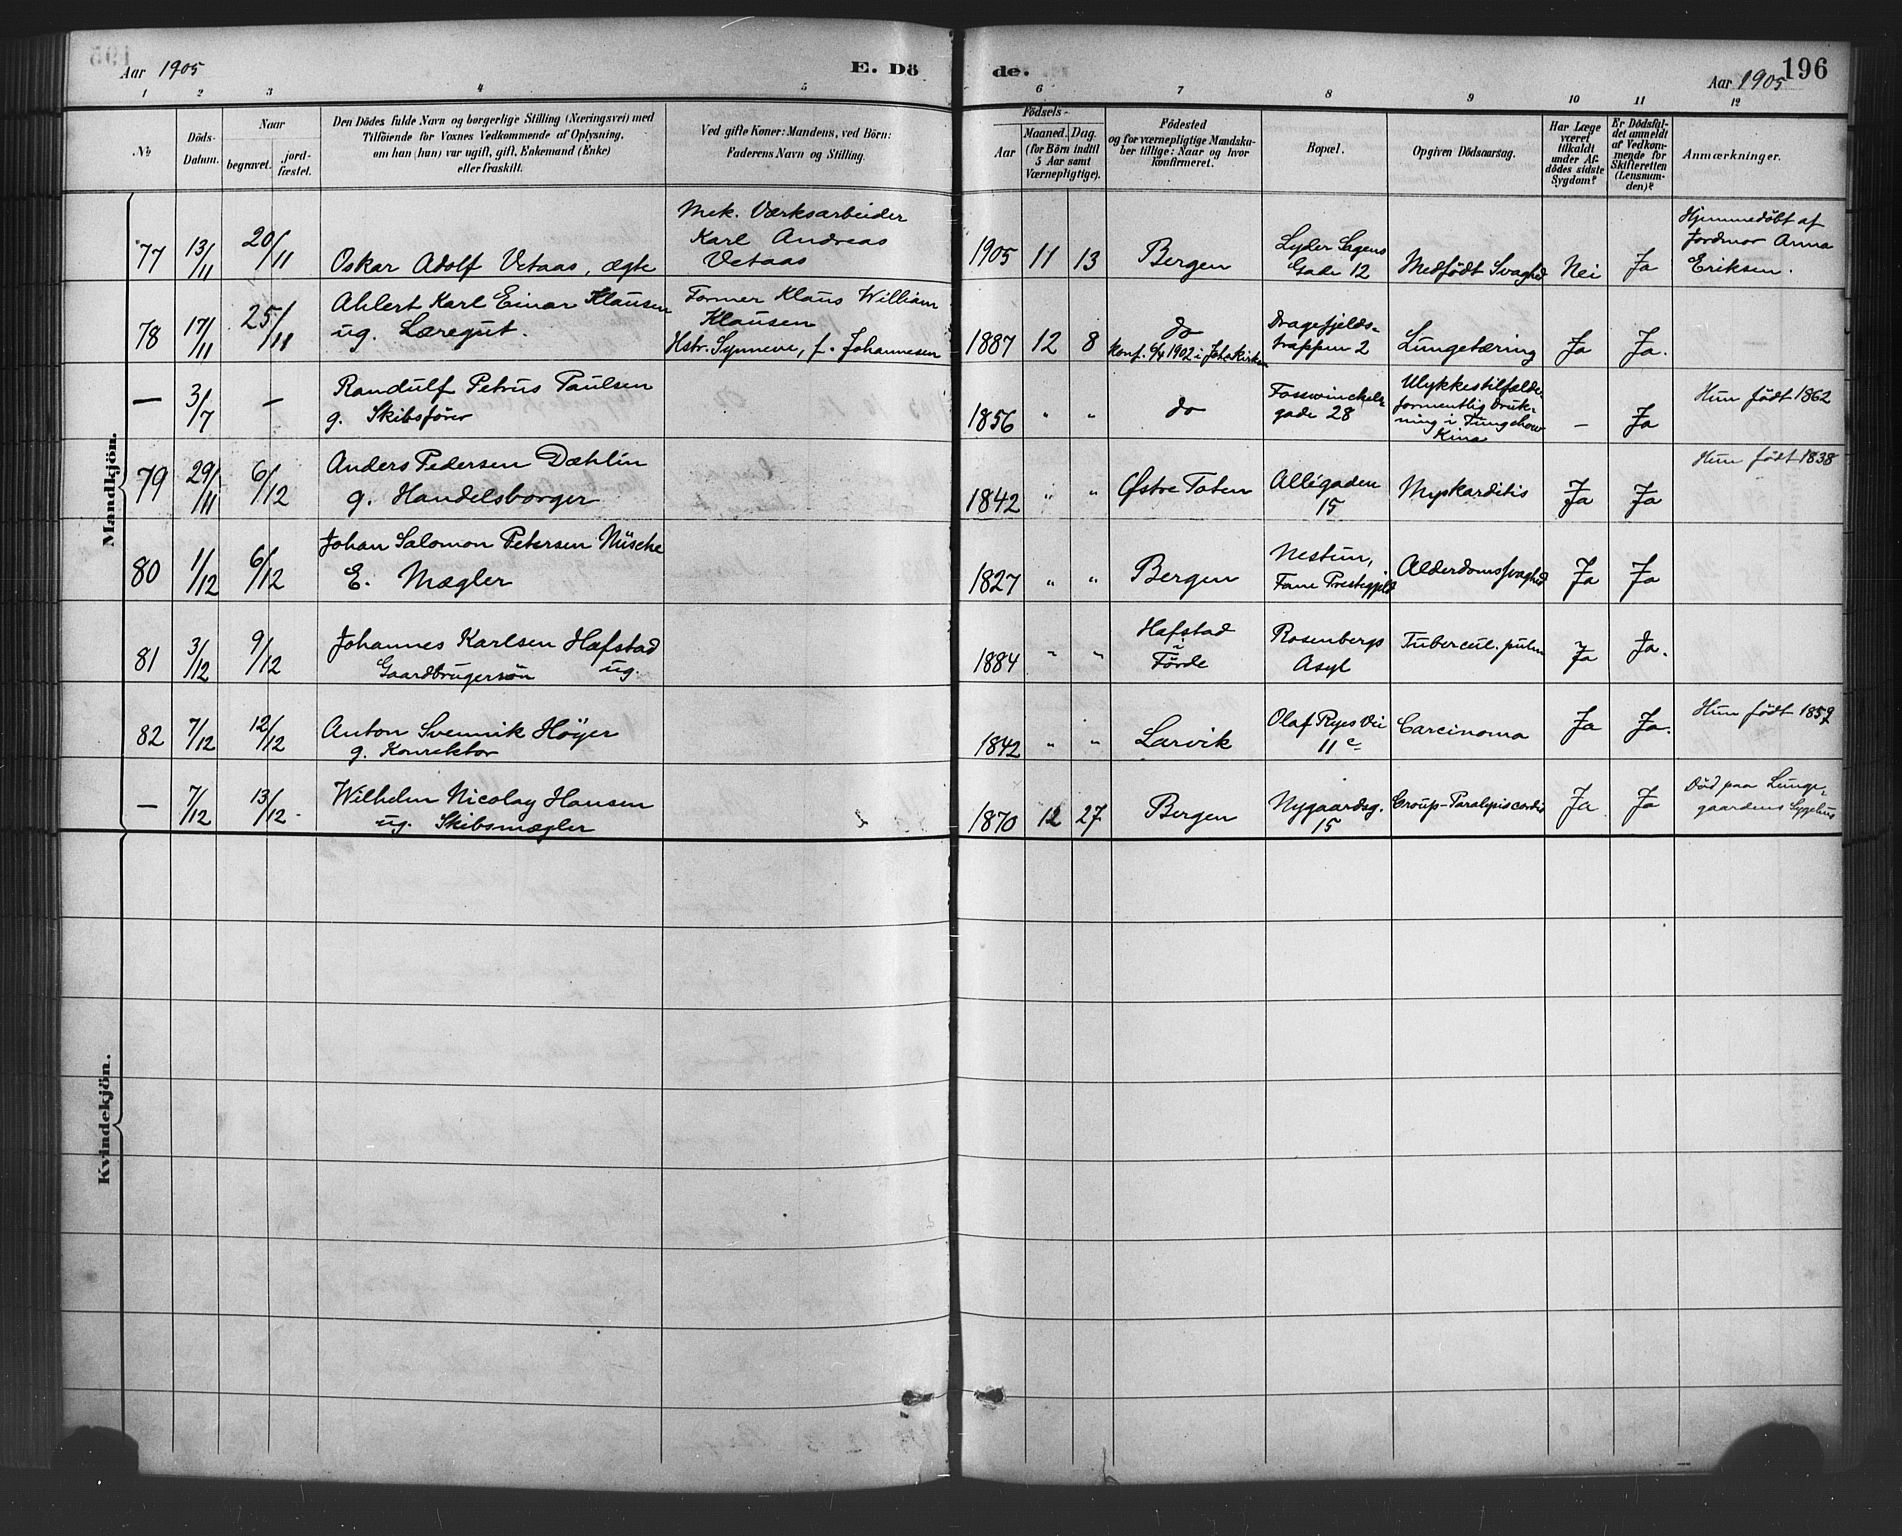 Aar 1905
E. Dö
de.
196
Aar 1905
1 2 3 4 5 6 7 8 9 10 11 12
No
Döds-
Datum.
Naar
begravet.
jord-
fæstet.
Den Dödes fulde Navn og borgerlige Stilling (Næringsvei) med
Tilföiende for Voxnes Vedkommende af Oplysning,
om han (hun) var ugift, gift, Enkemand (Enke)
eller fraskilt.
Ved gifte Koner: Mandens, ved Börn:
Faderens Navn og Stilling.
Födsels-
Aar
Maaned. Dag.
(for Börn indtil
5 Aar samt
Værnepligtige).
Födested
og for værnepligtige Mandska-
ber tillige: Naar og hvor
konfirmeret.
Bopæl.
Opgiven Dödsaarsag.
Har Læge
været
tilkaldt
under Af-
dödes sidste
Sygdom?
Er Dödsfal-
det anmeldt
af Vedkom-
mende for
Skifteretten
(Lensman-
den)?
Anmærkninger.
Mandkjön.
77 13/11 20/11
Oskar Adolf Vetaas, ægte
Mek. Værksarbeider
Karl Andreas
Vetaas
1905 11 13
Bergen
Lyder Sagens
Gade 12
Medfödt Svaghed
Nei
Ja
Hjemmedöbt af
Jordmor Anna
Eriksen.
78 17/11 25/11
Ahlert Karl Einar Klausen
ug. Læregut.
Former Klaus William
Klausen
Hstr. Synneve, f. Johannesen
1887 12 8
do
Konf. 6/4 1902 i Johskirken
Dragefjelds-
trappen 2
Lungetæring
Ja
Ja.
— 3/7 —
Randulf Petrus Paulsen
g. Skibsförer
1856 " "
do
Fosswinckels-
gade 28
Ulykkestilfælde,
formentlig Druk-
ning i Tungchow
Kina
—
Ja
Hun födt 1862
79 29/11 6/12
Anders Pedersen Dæhlin
g. Handelsborger
1842 " "
Østre Toten
Allégaden
15
Myokarditis
Ja
Ja
Hun født 1838
80 1/12 6/12
Johan Salomon Petersen Müsche
E. Mægler
1827 " "
Bergen
Nestun,
Fane Prestegjeld
Alderdomssvaghed
Ja
Ja
81 3/12 9/12
Johannes Karlsen Hafstad
Gaardbrugersön ug.
1884 " "
Hafstad
i
Förde
Rosenbergs
Asyl
Tubercul. pulm
Ja
Ja.
82 7/12 12/12
Anton Svennik Höyer
g. Konrektor
1842 " "
Larvik
Olaf Ryes Vei
11 c
Carcinoma
Ja
Ja.
Hun födt 1859
— 7/12 13/12
Wilhelm Nicolay Hansen
ug. Skibsmægler
1870 12 27
Bergen
Nygaardsg.
15
Croup-Paralysis cordis
Ja
Ja
Död paa Lunge-
gaardens Sygehus
Kvindekjön.